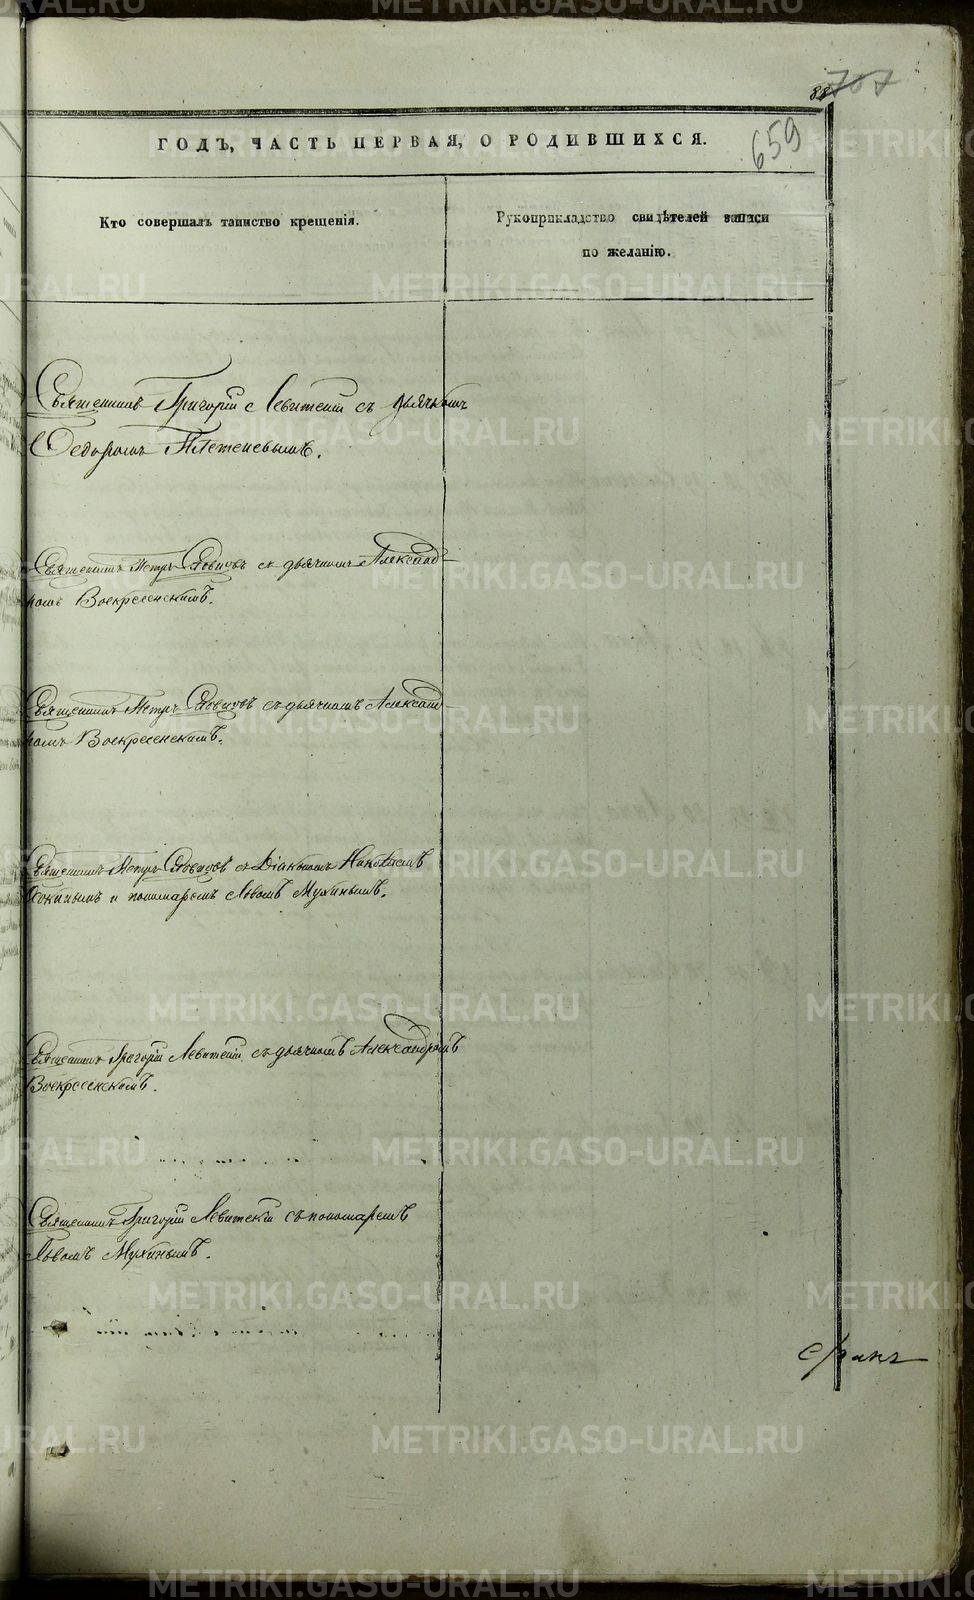 88
707
659
ГОДЪ, ЧАСТЬ ПЕРВАЯ, О РОДИВШИХСЯ.
Кто совершалъ таинство крещенія.
Рукоприкладство свидѣтелей записи
по желанію.
Священникъ Григорій Левитскій съ дьячкомъ
Ѳедоромъ Плетеневымъ.
Священникъ Петръ съ дьячкомъ Александ-
ромъ Воскресенскимъ.
Священникъ Петръ съ дьячкомъ Александ-
ромъ Воскресенскимъ.
Священникъ Петръ съ Діакономъ Николаемъ
и пономаремъ Львомъ Мухинымъ.
Священникъ Григорій Левитскій съ дьячкомъ Александромъ
Воскресенскимъ.
Священникъ Григорій Левитскій съ пономаремъ
Львомъ Мухинымъ.
METRIKI.GASO-URAL.RU